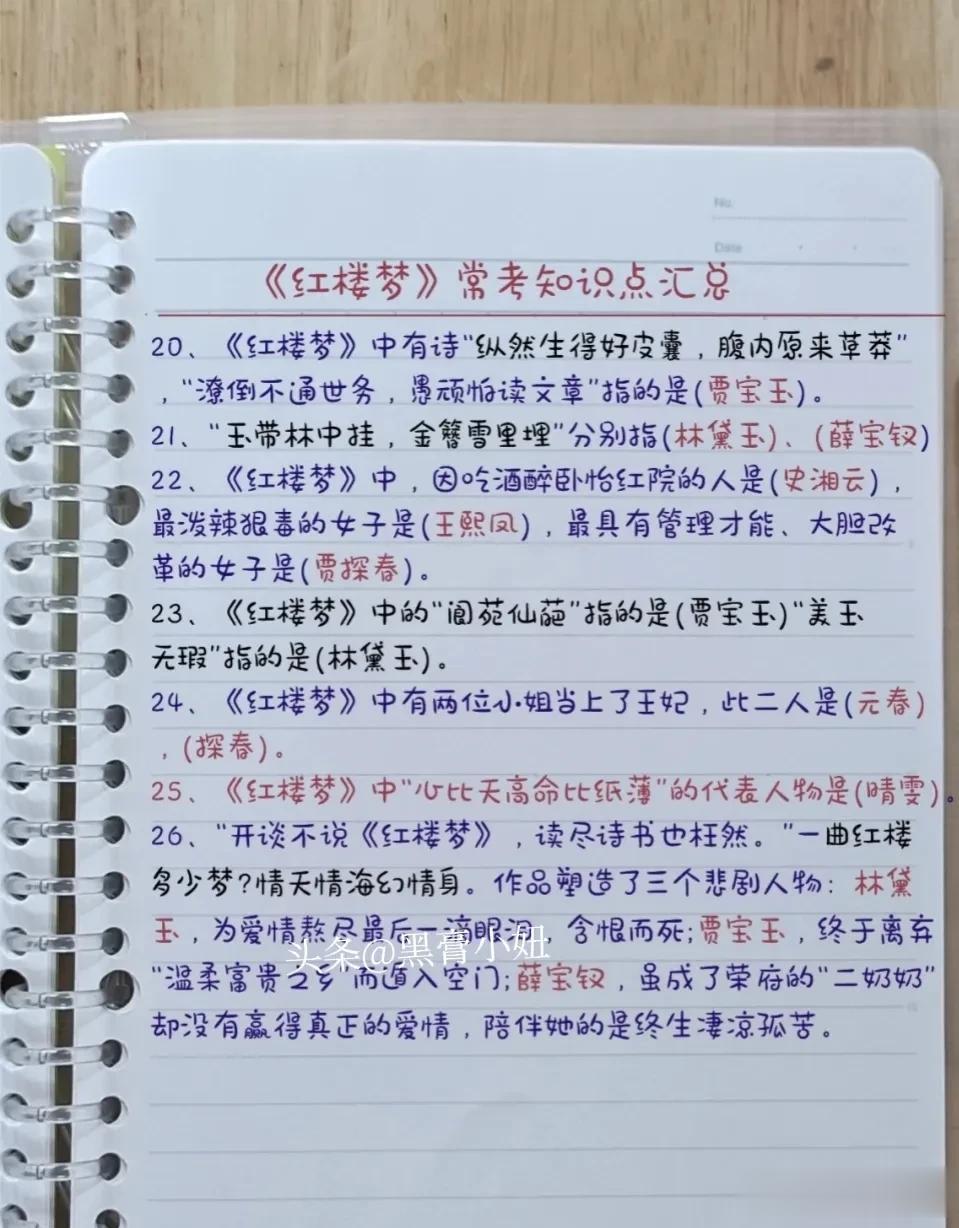 No.
Date
《红楼梦》常考知识点汇总
20、《红楼梦》中有诗“纵然生得好皮囊，腹内原来草莽”
，“潦倒不通世务，愚顽怕读文章”指的是(贾宝玉)。
21、“玉带林中挂，金簪雪里埋”分别指(林黛玉)、(薛宝钗)
22、《红楼梦》中，因吃酒醉卧怡红院的人是(史湘云)，
最泼辣狠毒的女子是(王熙凤)，最具有管理才能、大胆改
革的女子是(贾探春)。
23、《红楼梦》中的“阆苑仙葩”指的是(贾宝玉)“美玉
无瑕”指的是(林黛玉)。
24、《红楼梦》中有两位小姐当上了王妃，此二人是(元春)
，(探春)。
25、《红楼梦》中“心比天高命比纸薄”的代表人物是(晴雯)。
26、“开谈不说《红楼梦》，读尽诗书也枉然。”一曲红楼
多少梦?情天情海幻情身。作品塑造了三个悲剧人物：林黛
玉，为爱情熬尽最后一滴眼泪，含恨而死;贾宝玉，终于离弃
“温柔富贵之乡”而遁入空门;薛宝钗，虽成了荣府的“二奶奶”
却没有赢得真正的爱情，陪伴她的是终生凄凉孤苦。
头条@黑膏小妞